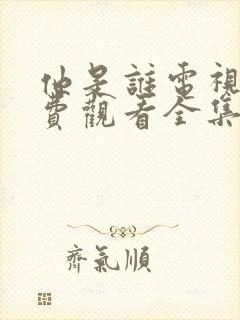 他是誰電視
費觀看全集
齊氣順